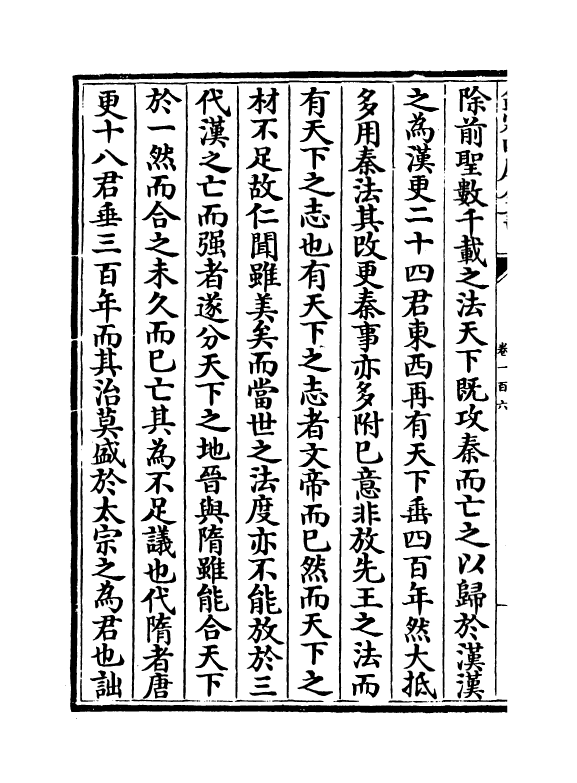 除前聖數千載之法天下既攻秦而亡之以歸於漢漢
之為漢更二十四君東西再有天下垂四百年然大抵
多用秦法其改更秦事亦多附己意非放先王之法而
有天下之志也有天下之志者文帝而已然而天下之
材不足故仁聞雖美矣而當世之法度亦不能放於三
代漢之亡而强者遂分天下之地晉與隋雖能合天下
於一然而合之未久而已亡其為不足議也代隋者唐
更十八君垂三百年而其治莫盛於太宗之為君也詘
卷一百六